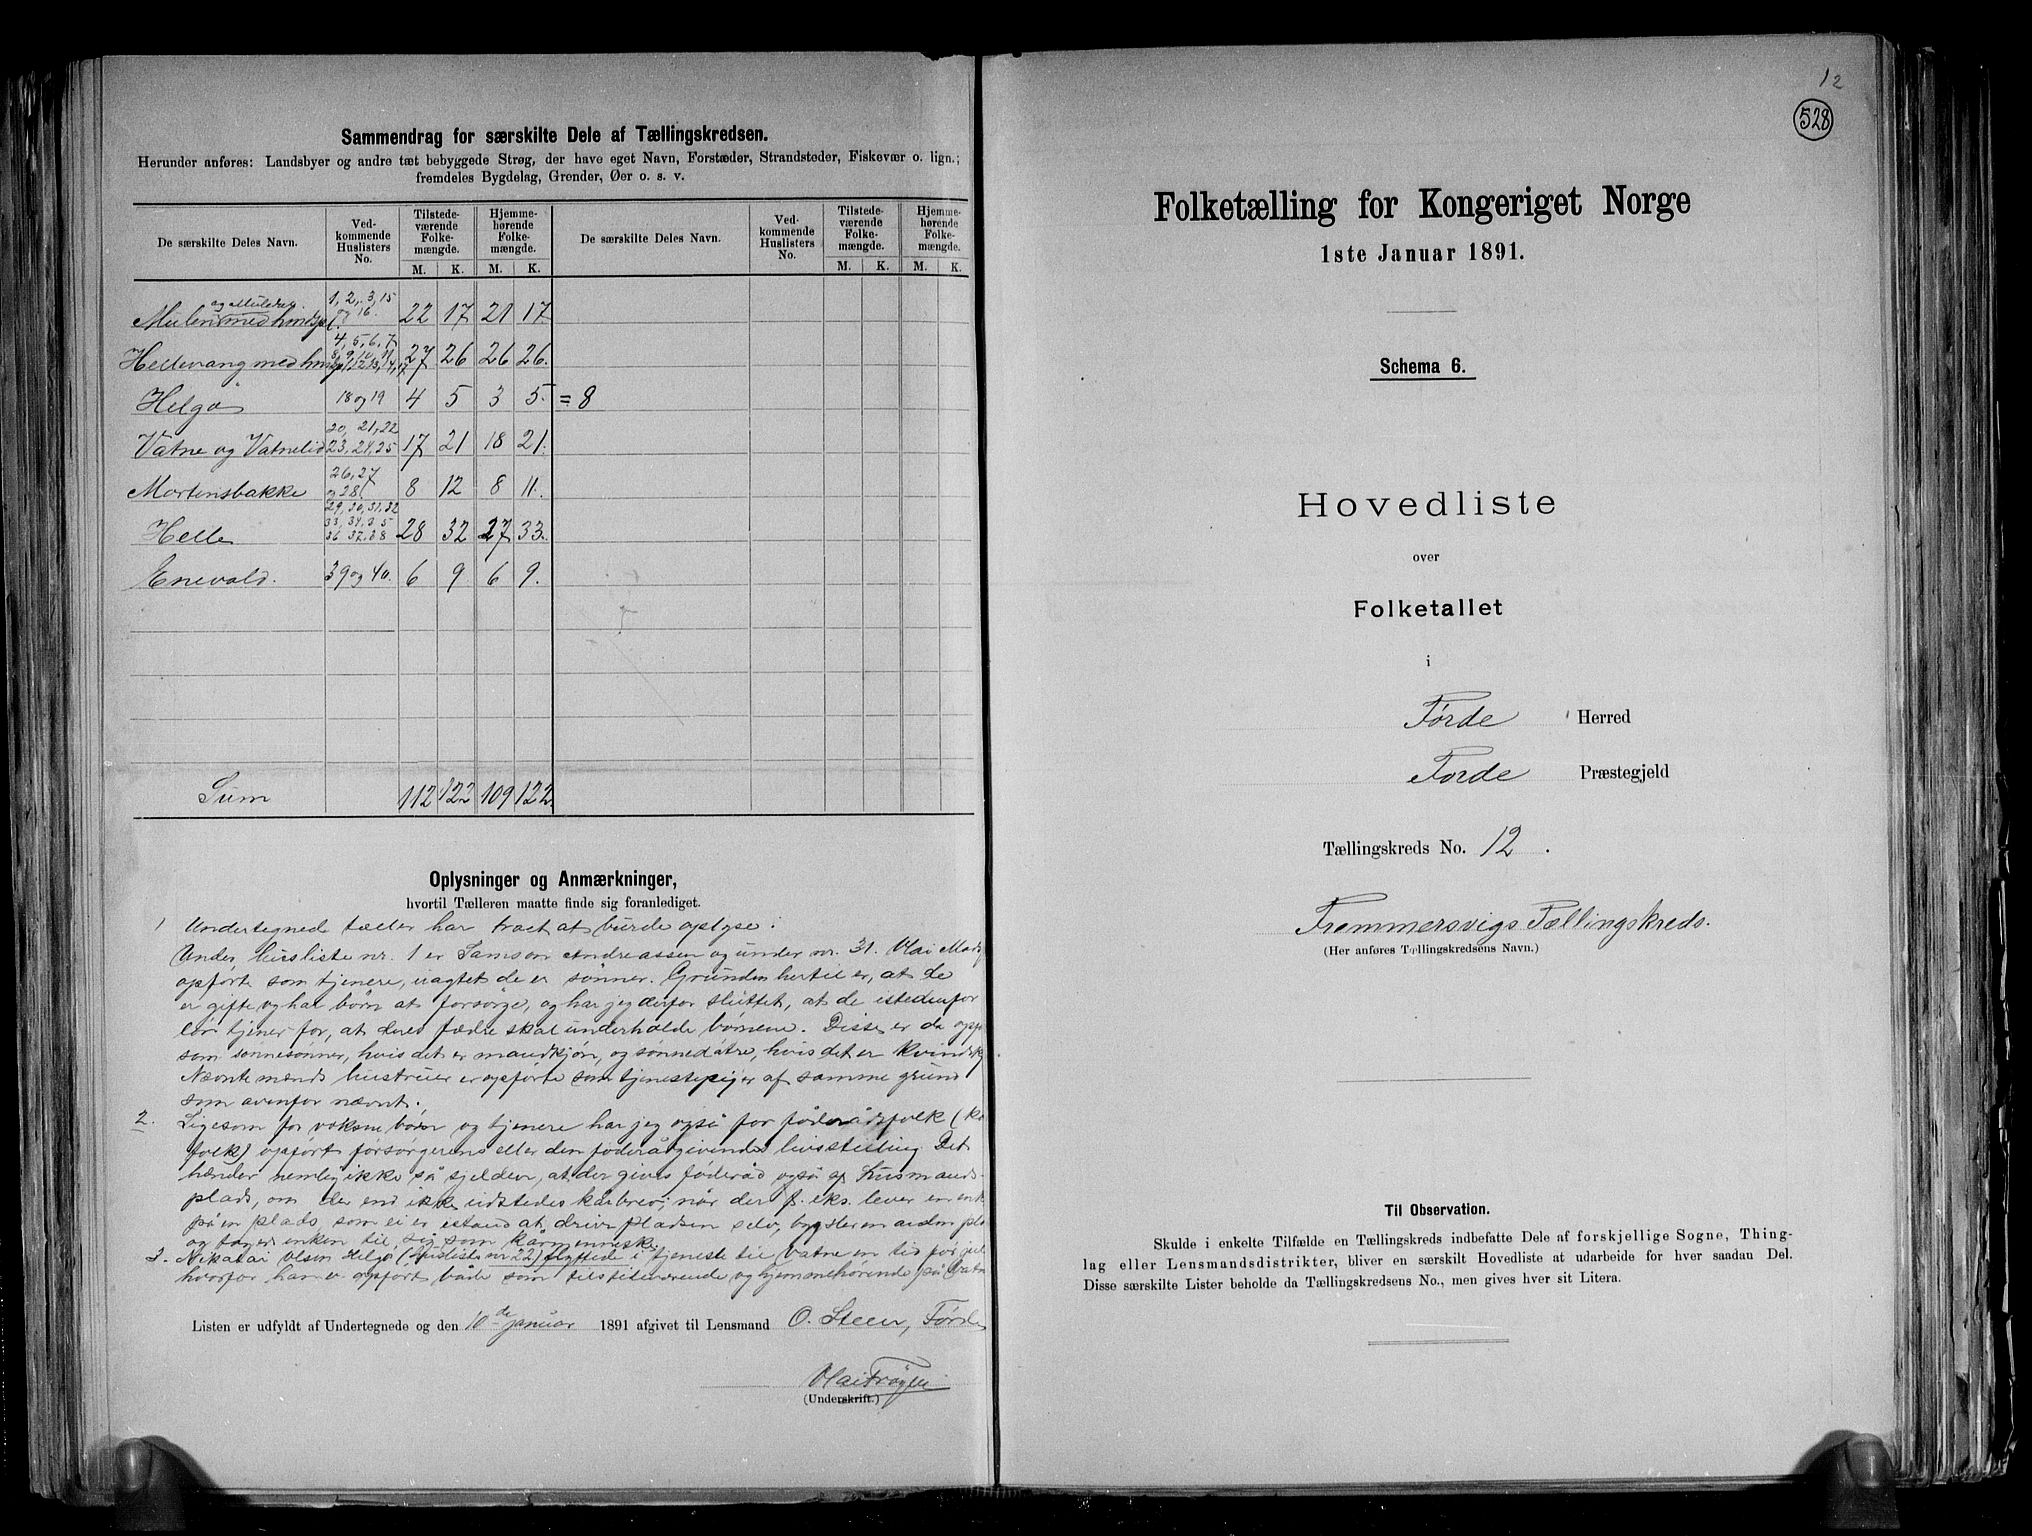 Sammendrag for særskilte Dele af Tællingskredsen.
Herunder anføres: Landsbyer og andre tæt bebyggede Strøg, der have eget Navn, Forstæder, Strandsteder, Fiskevær o. lign.;
fremdeles Bygdelag, Grender, Øer o. s. v.
De særskilte Deles Navn. Ved-kommende Huslisters No. Tilstede-værende Folke-mængde. Hjemme-hørende Folke-mængde. De særskilte Deles Navn. Ved-kommende Huslisters No. Tilstede-værende Folke-mængde. Hjemme-hørende Folke-mængde.
M. K. M. K. M. K. M. K.
1, 2, 3, 15
og 16. 22 17 21 17
4, 5, 6, 7
Hellevang med 27 26 26 26.
Helgø 18 og 19 4 5 3 5. = 8
20, 21, 22
Vatne og Vatnelid 23, 24, 25 17 21 18 21.
26, 27
Mortensbakke og 28 8 12 8 11.
29, 30, 31, 32
33, 34, 35
Helle 36 37, 38 28 32 27 33.
Enevald. 39 og 40. 6 9 6 9.
Sum 112 122 109 122.
Oplysninger og Anmærkninger,
hvortil Tælleren maatte finde sig foranlediget.
1 Undertegnede tæller har troet at burde oplyse:
Under husliste nr. 1 er Samson Andreassen og under nr. 31. Olai Mads
opførte som tjenere, uagtet de er sønner. Grunden hertil er, at de
er gifte og har børn at forsørge, og har jeg derfor sluttet, at de istedenfor
løn tjener for, at deres fædre skal underholde børnene. Disse er da
som sønnesønner, hvis det er mandkjøn, og sønnedøtre, hvis det er kvindekj
Nævnte mænds hustruer er opførte som tjenestepiger af samme grund
som ovenfor nævnt.
2. Ligesom for voksne børn og tjenere har jeg også for føderådsfolk (kå
folk) opført forsørgerens eller den føderådgivendes livsstilling Det
hænder nemlig ikke så sjelden, at der gives føderåd også af husmands-
plads, om der end ikke udstedes kårbrev; når der f. eks. lever en enk
på en plads, som ei er istand at drive pladsen selv, bygsler en anden pla
og tager enken til sig som kårmenneske.
3. Nikolai Olsen Helgø (husliste nr 22) flyttede i tjeneste til Vatne en tid før jul
hvorfor han er opført både som tilstedeværende og hjemmehørende på Vatne
Listen er udfyldt af Undertegnede og den 10de januar 1891 afgivet til Lensmand O. Steen, Førde
(Underskrift.)
12
528
Folketælling for Kongeriget Norge
1ste Januar 1891.
Schema 6.
Hovedliste
over
Folketallet
i
Førde Herred
Førde Præstegjeld
Tællingskreds No. 12.
Frammersvigs Tællingskreds.
(Her anføres Tællingskredsens Navn.)
Til Observation.
Skulde i enkelte Tilfælde en Tællingskreds indbefatte Dele af forskjellige Sogne, Thing-
lag eller Lensmandsdistrikter, bliver en særskilt Hovedliste at udarbeide for hver saadan Del.
Disse særskilte Lister beholde da Tællingskredsens No., men gives hver sit Litera.